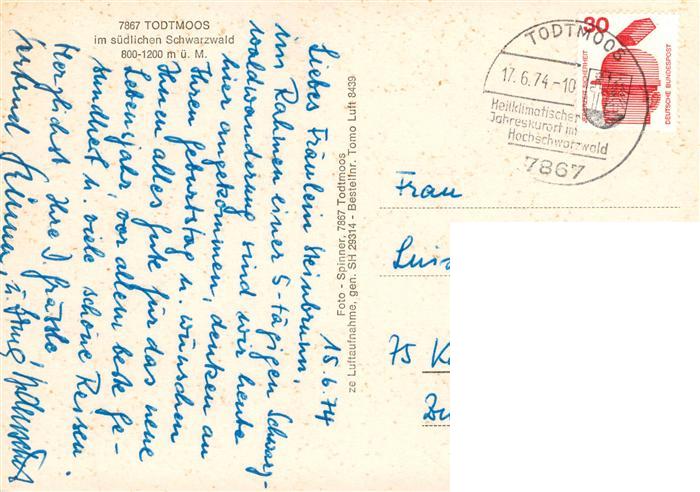 7867 TODTMOOS
im südlichen Schwarzwald
800-1200 m ü. M.
15.6.74
Liebes Fräulein Steinbrunn,
im Rahmen einer 5-tägigen Schwarz-
waldwanderung sind wir heute
hier angekommen, denken an
Ihren Geburtstag u. wünschen
Ihnen alles Gute für das neue
Lebensjahr, vor allem beste Ge-
sundheit u. viele schöne Reisen.
Herzlichst Ihre
Foto - Spinner, 7867 Todtmoos
ze Luftaufnahme, gen. SH 29314 - Bestellnr. Tomo Luft 8439
TODTMOOS
17.6.74-10
Heilklimatischer
Jahreskurort im
Hochschwarzwald
7867
30
DEUTSCHE BUNDESPOST
Frau
75 K